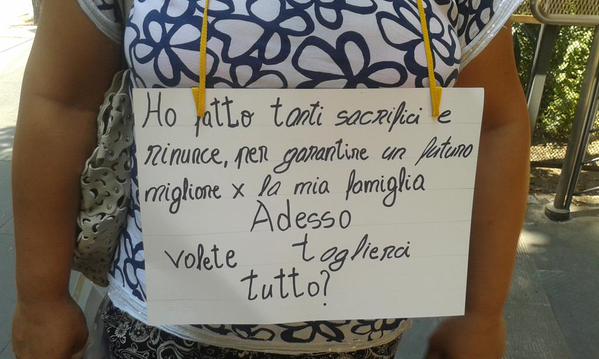 Ho fatto tanti sacrifici e
rinunce, per garantire un futuro
migliore x la mia famiglia
Adesso
volete toglierci
tutto?